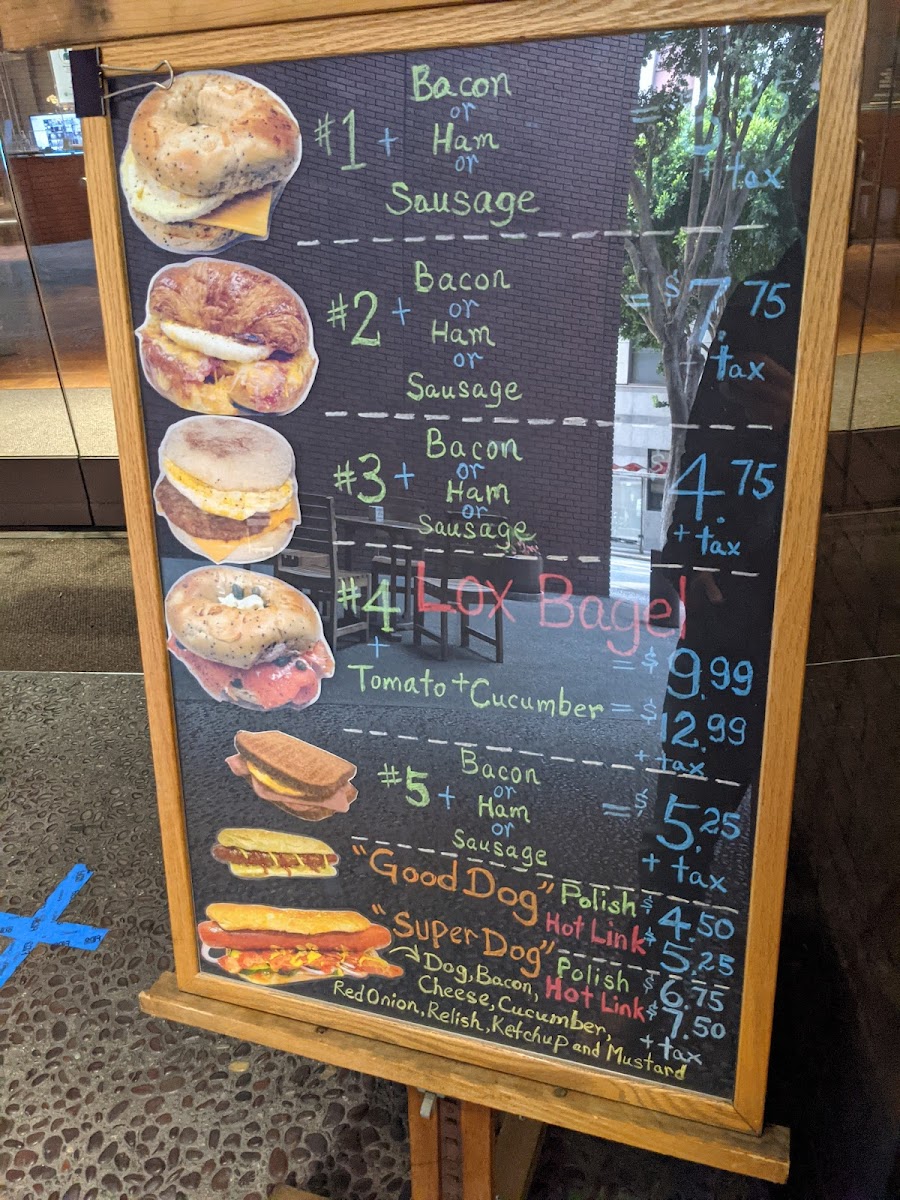 Bacon
or
#1 + Ham
or
Sausage
+ tax
Bacon
or
#2 + Ham = $7.75
or
Sausage + tax
Bacon
or
#3 + Ham 4.75
or
Sausage + tax
#4 Lox Bagel
+ = $9.99
Tomato + Cucumber = $12.99
+ tax
Bacon
or
#5 + Ham = $5.25
or
Sausage + tax
"Good Dog" Polish $4.50
Hot Link $5.25
"Super Dog" Polish $6.75
Hot Link $7.50
Dog, Bacon,
Cheese, Cucumber,
Red Onion, Relish, Ketchup and Mustard
+ tax